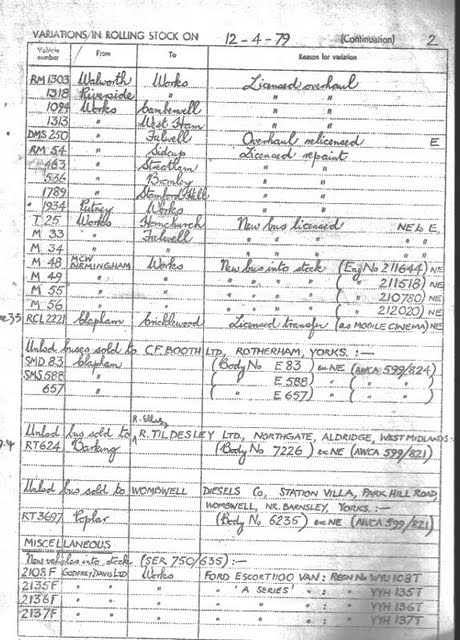 VARIATIONS IN ROLLING STOCK ON 12-4-79 (Continuation) 2
Vehicle number From To Reason for variation
RM 1303 Walworth Works Licensed overhaul
1318 Riverside " "
1094 Works Camberwell " "
1313 " West Ham " "
DMS 250 " Fulwell Overhaul relicensed E
RM 54 " Sidcup Licensed repaint
463 " Streatham " "
536 " Bromley " "
1789 " Stamford Hill " "
1934 Putney Works " "
T. 25 Works Hornchurch New bus licensed NE to E,
M 33 " Fulwell " " " "
M 34 " " " " " "
M 48 MCW BIRMINGHAM Works New bus into stock (Eng No 211644) NE
M 49 " " " " " " ( " 211518) NE
M 55 " " " " " " ( " 210780) NE
M 56 " " " " " " ( " 212020) NE
RCL 2221 Clapham Cricklewood Licensed transfer (as MOBILE CINEMA) NE
Unlcd buses sold to C.F. BOOTH LTD, ROTHERHAM, YORKS. :—
SMD 83 Clapham (Body No E 83) ex NE (AWCA 599/824)
SMS 588 " ( " E 588) " ( " " )
657 " ( " E 657) " ( " " )
Unlcd bus sold to R. TILDESLEY LTD., NORTHGATE, ALDRIDGE, WEST MIDLANDS:-
RT 624 Barking (Body No 7226) ex NE (AWCA 599/821)
Unlcd bus sold to WOMBWELL DIESELS Co, STATION VILLA, PARK HILL ROAD,
WOMBWELL, NR. BARNSLEY, YORKS. :—
RT 3697 Poplar (Body No 6235) ex NE (AWCA 599/821)
MISCELLANEOUS
New vehicles into stock (SER 750/635) :—
2108 F GODFREY DAVIS LTD Works FORD ESCORT 1100 VAN : REGN No WYU 108T
2135 F " " " " 'A SERIES' " : " YYH 135T
2136 F " " " " " " : " YYH 136T
2137 F " " " " " " : " YYH 137T